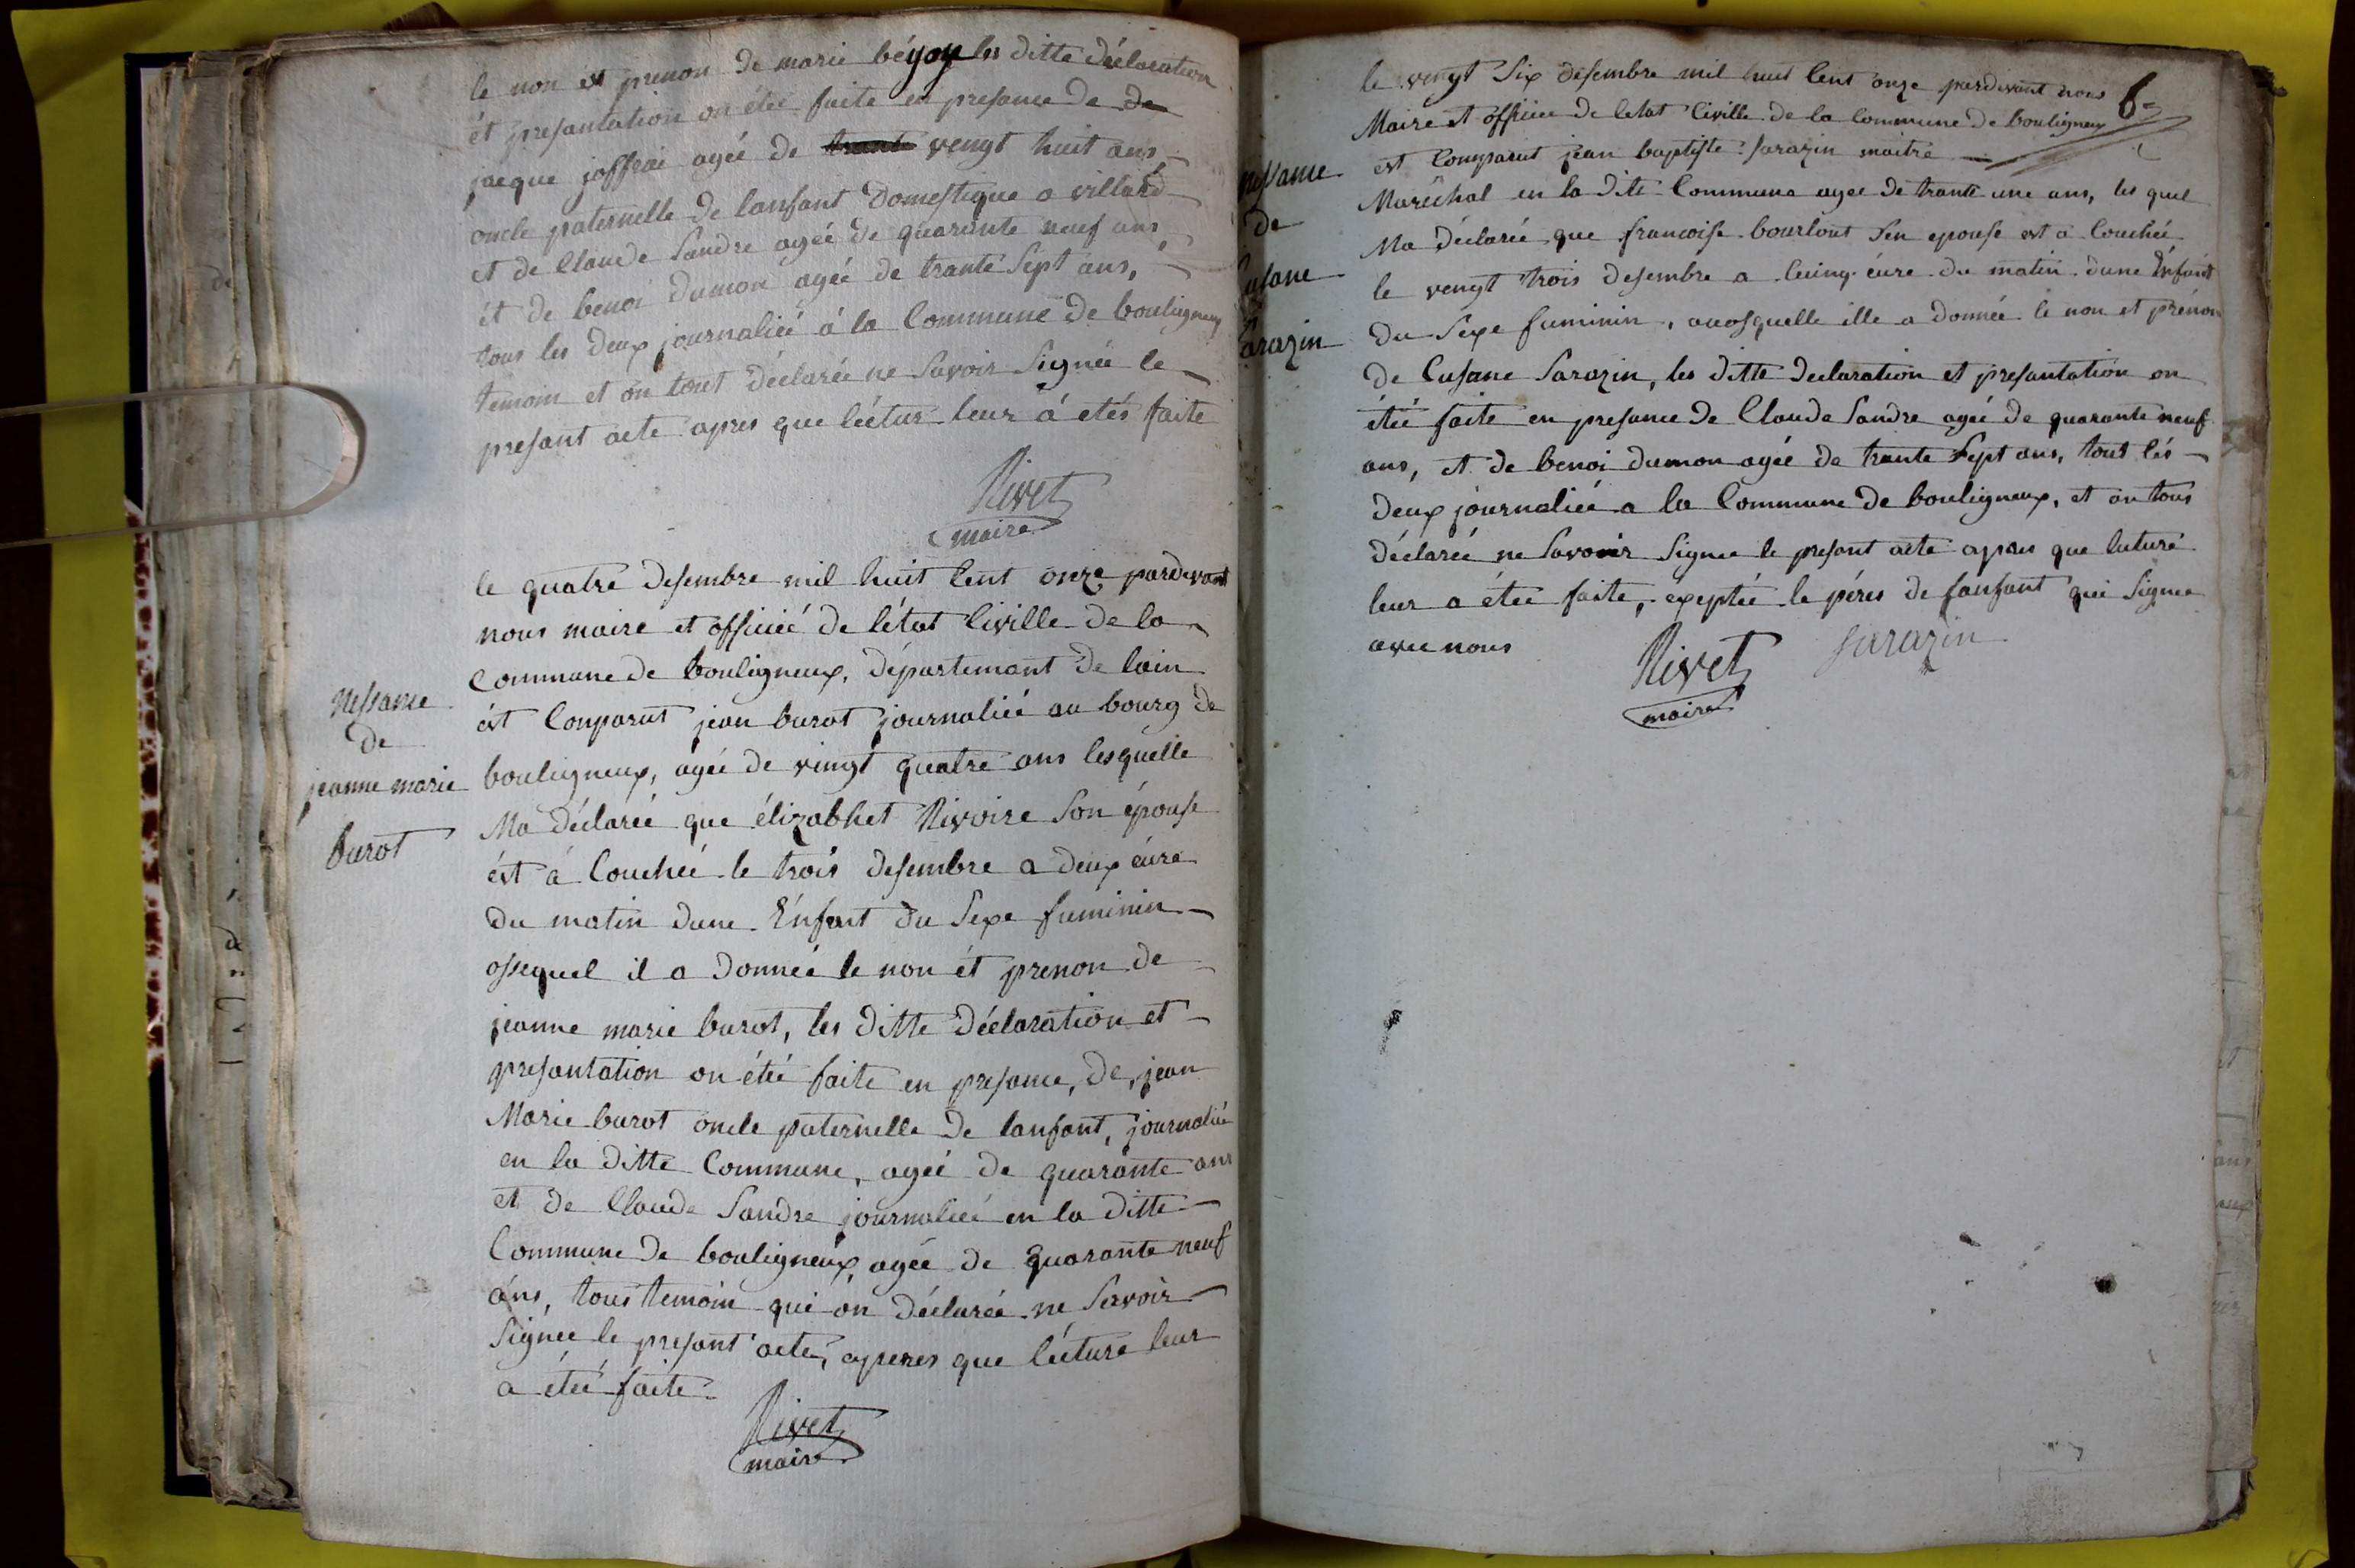 le non et prenon de marie béyoy les ditte déclaration
ét presantation on étéé faite en presance de de
jacque joffrai agéé de trante vengt huit ans,
oncle paternelle de lanfant domestique a villard
et de Claude Sandre agéé de quarante neuf ans
ét de benoi dumon agéé de tranté Sept ans,
tous les deux journaliéé á la Commune de bouligneux
temoin et on tout déclaréé ne Savoir Signéé le
presant acte apres que léctur leur á etés faite
Rivet
maire
le quatre desembre mil huit Cent onze pardevant
nous maire et officiéé de létat Civille de la
Commune de bouligneux, département de lain
ést Conparut jean burot journaliéé au bourg de
bouligneux, agéé de vingt quatre ans lesquelle
Ma déclaréé que élizabhet Rivoire Son épouse
ést á Couchéé le trois desembre a deux éure
du matin dune Enfant du Sexe fuminin
ossequel il a donnéé le non ét prenon de
jeanne marie burot, les ditte déclaration et
presantation on étéé faite en presance, de, jean
Marie burot oncle paternelle de lanfant, journaliéé
en la ditte Commune, agéé de quarante ans
et de Claude Sandre journaliéé en la ditte
Commune de bouligneux, agéé de quarante neuf
ans, tous temoin qui on déclaréé ne Savoir
Signee le presant acte, aperes que lécture leur
a étéé faite
Rivet
maire
nessance
de
jeanne marie
burot
le vengt Six désembre mil huit Cent onze pardevant nous
6
Maire et officiee de letat Civille de la Commune de bouligneux
est Comparut jean baptiste Sarazin maitre
Maréchal en la dite Commune agee de trante une ans, les quel
Ma déclaréé que francoise bourlout Sen epouse est a Couchéé
le vengt trois desembre a Cuinq éure du matin dune Enfant
du Sexe fuminin, auosquelle ille a donnéé le non et prénon
de Cusane Sarazin, les ditte declaration et presantation on
étéé faite en presance de Claude Sandre agéé de quarante neuf
ans, et de benoi dumon agéé de trante Sept ans, tout lés
deux journaliéé a la Commune de bouligneux, et on tous
déclaréé ne Savoir Signee le presant acte apres que luture
leur a étéé faite, exeptéé le péres de fanfant qui Signee
avec nous
Rivet
maire
sarazin
nessance
de
usane
arazin